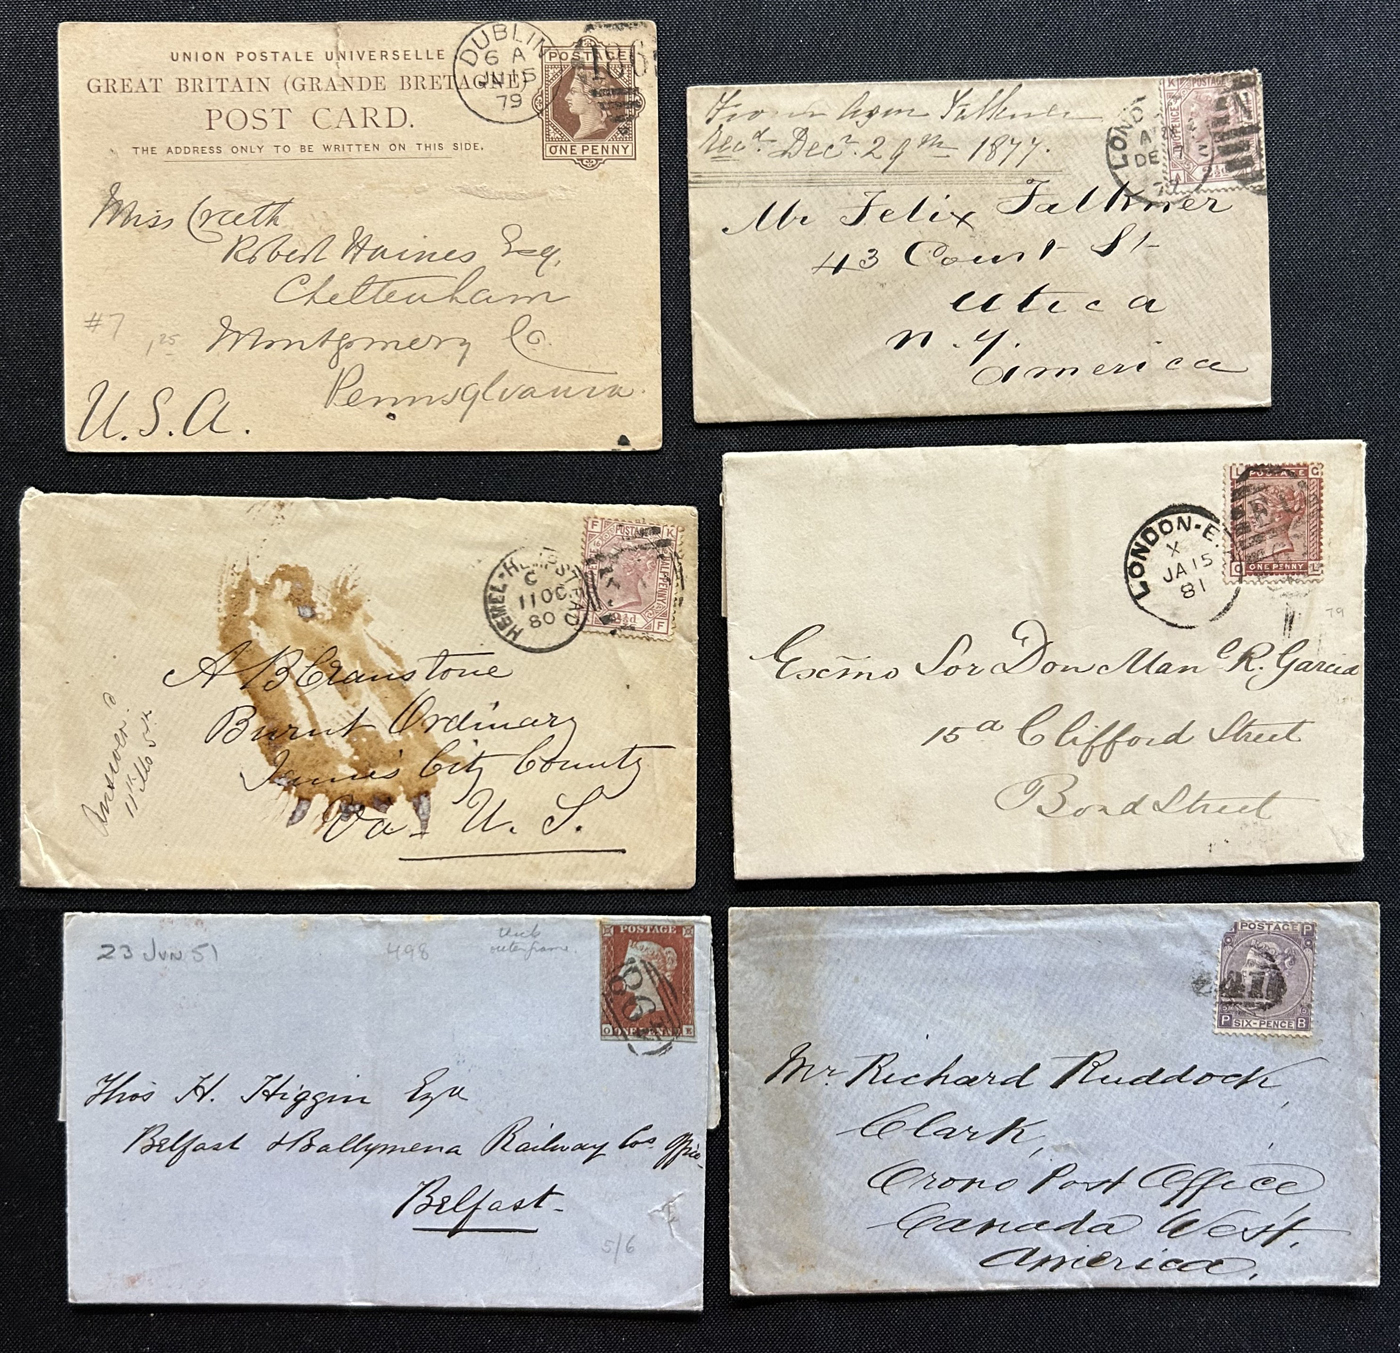 UNION POSTALE UNIVERSELLE
GREAT BRITAIN (GRANDE BRETAGNE)
POST CARD.
THE ADDRESS ONLY TO BE WRITTEN ON THIS SIDE.
DUBLIN
6 A
JU 15
79
186
POSTAGE
ONE PENNY
Miss Creeth
Robert Haines Esq.
Cheltenham
Montgomery Co.
Pennsylvania.
U.S.A.
#7
.25
From Falkner
Recd. Decr. 29th 1877.
LOND
DE
77
POSTAGE
Mr Felix Falkner
43 Court St
Utica
N.Y.
America
HEMEL-HEMPSTEAD
C
11 OC
80
F K
POSTAGE
HALFPENNY
2½d
F
A B Cranstone
Burnt Ordinary
James City County
Va- U. S.
Answered
LONDON-E
X
JA 15
81
L G
G L
ONE PENNY
79
Excmo Sor Don Manl R. Garcia
15a Clifford Street
Bond Street
23 JUN 51
498
POSTAGE
O ONE PENNY E
62
Thos H. Higgin Eqr
Belfast & Ballymena Railway Cos Office
Belfast-
5/6
POSTAGE P
P SIX-PENCE B
Mr. Richard Ruddock
Clark,
Orono Post Office
Canada West,
America.